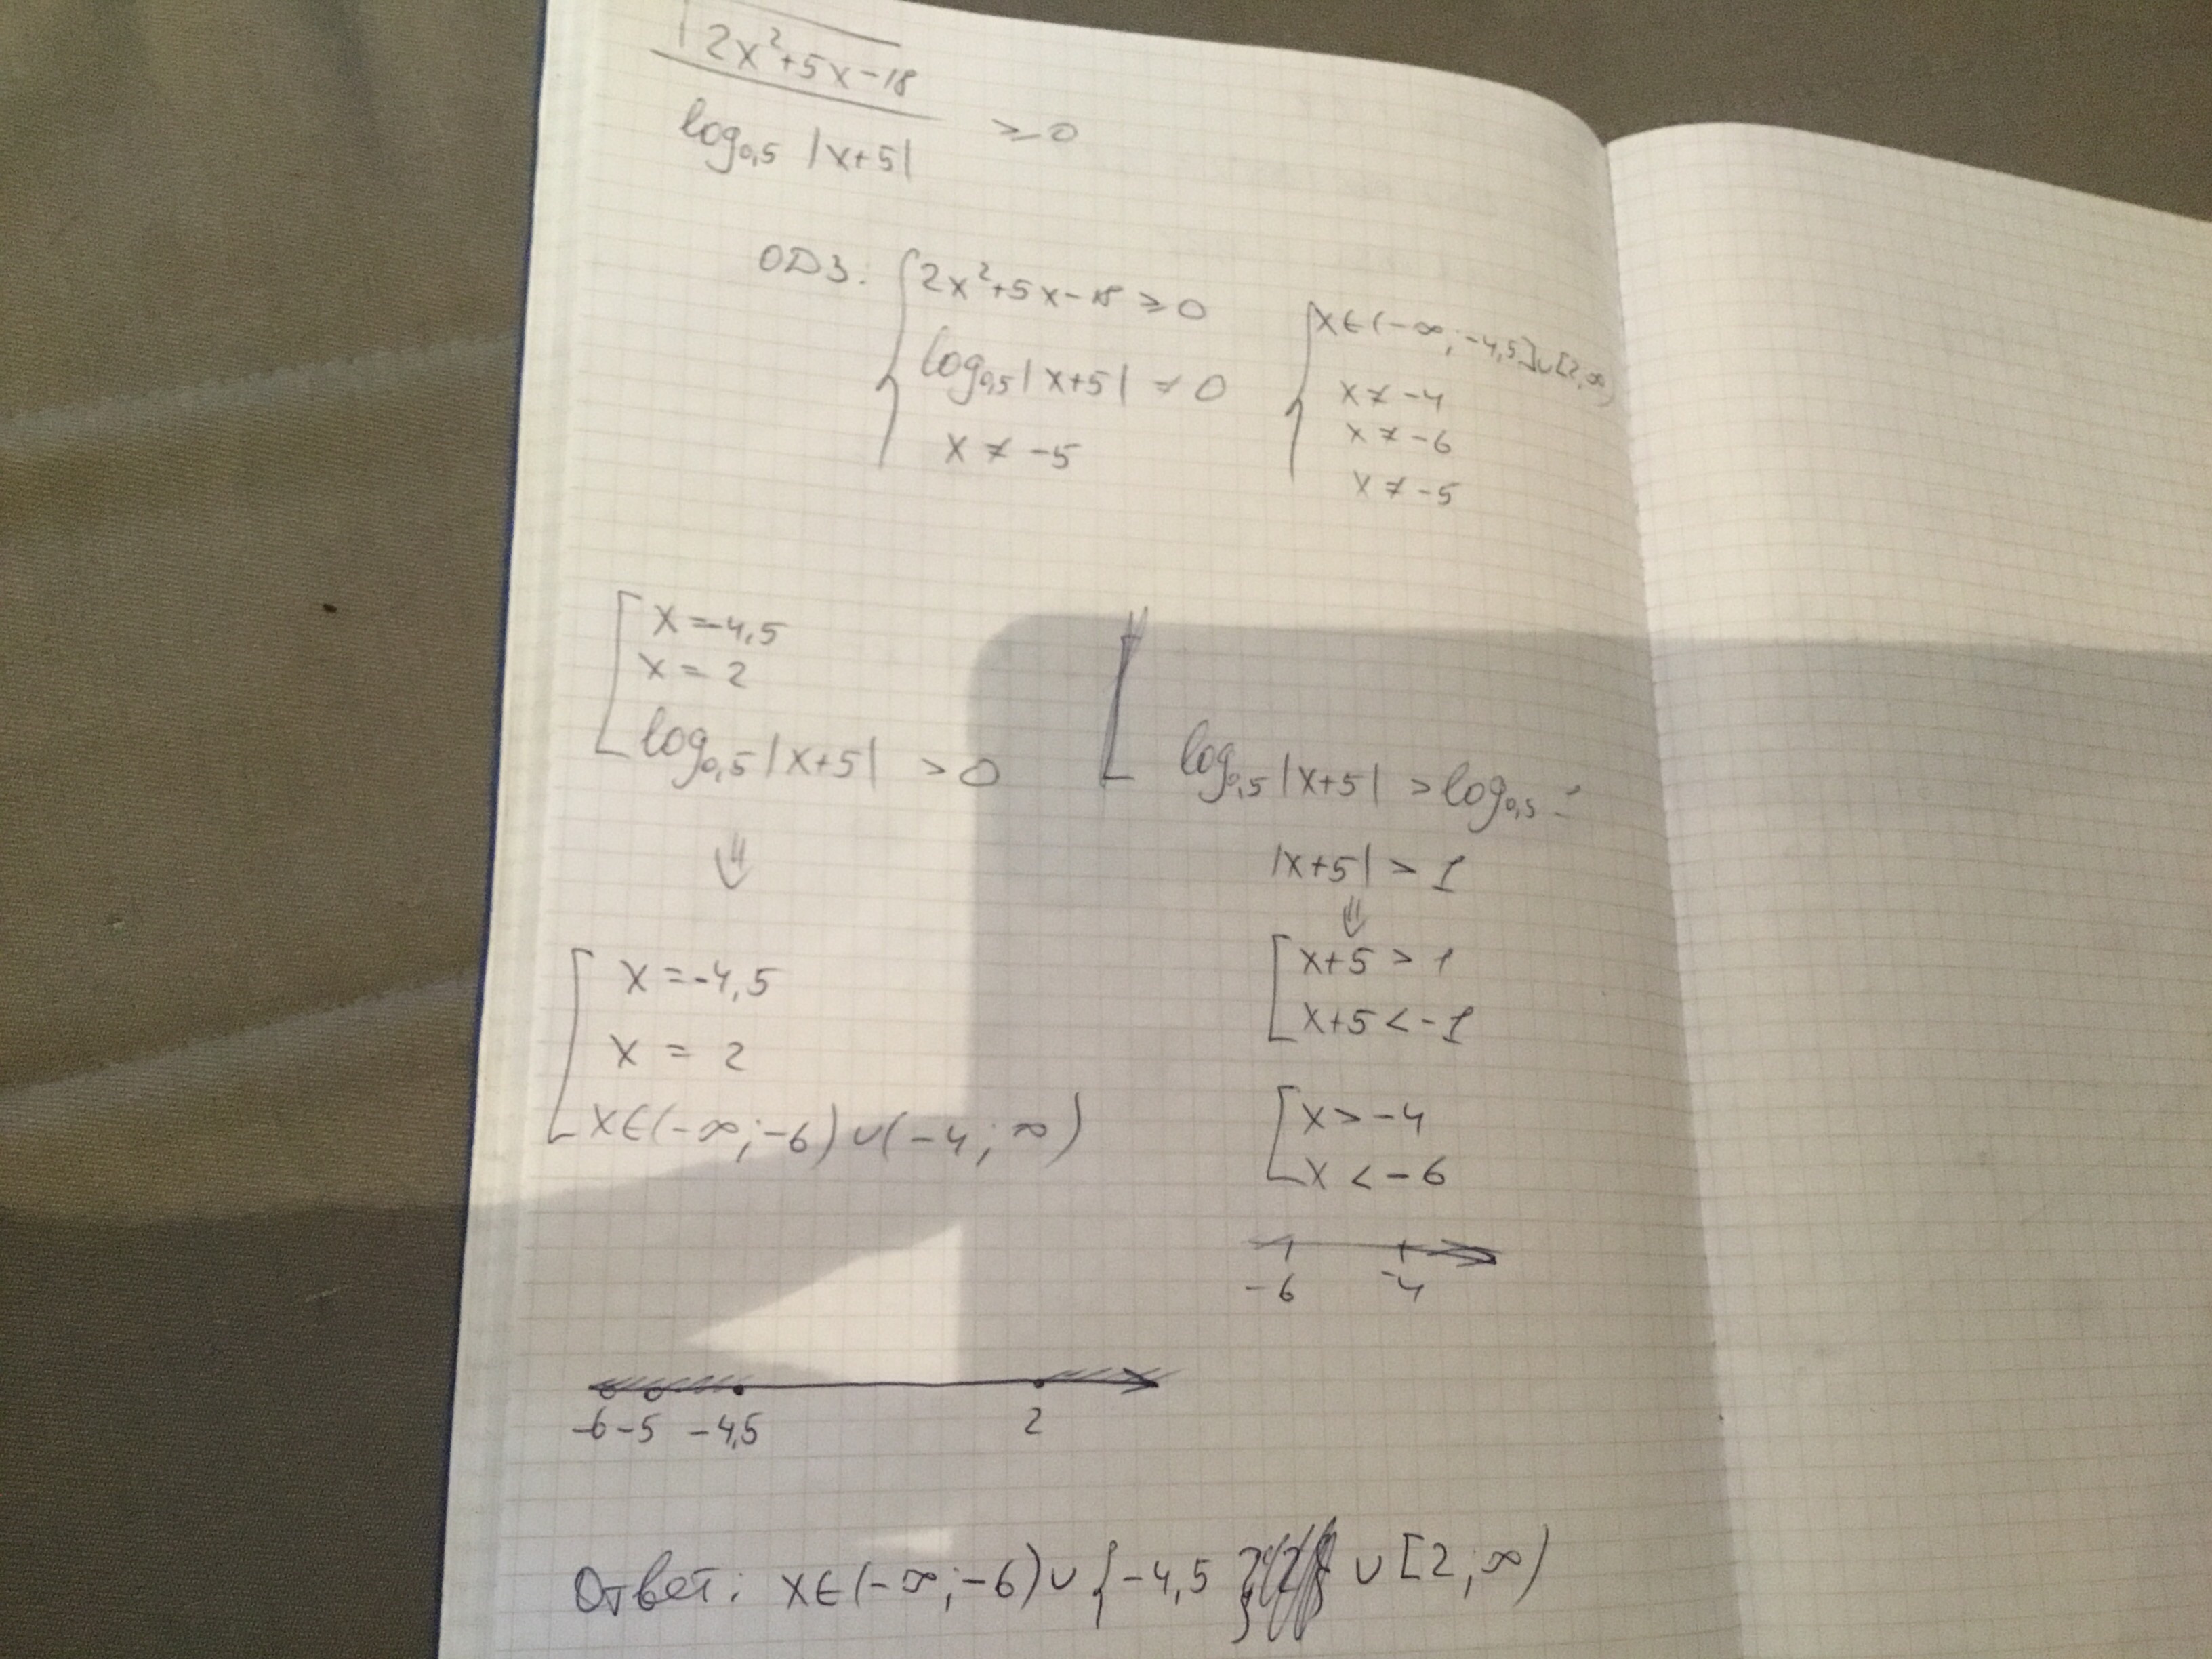 √2x²+5x-18
log₀,₅ |x+5| ≥ 0
ОДЗ: { 2x²+5x-18 ≥ 0
log₀,₅|x+5| ≠ 0
x ≠ -5
{ x∈(-∞; -4,5]∪[2;∞)
x ≠ -4
x ≠ -6
x ≠ -5
[ x=-4,5
x = 2
log₀,₅|x+5| > 0
⇓
[ x=-4,5
x = 2
x∈(-∞;-6)∪(-4;∞)
log₀,₅|x+5| > log₀,₅
|x+5| > 1
⇓
[ x+5 > 1
x+5 < -1
[ x > -4
x < -6
-6 -4
-6 -5 -4,5 2
Ответ: x∈(-∞;-6)∪{-4,5} ∪[2;∞)